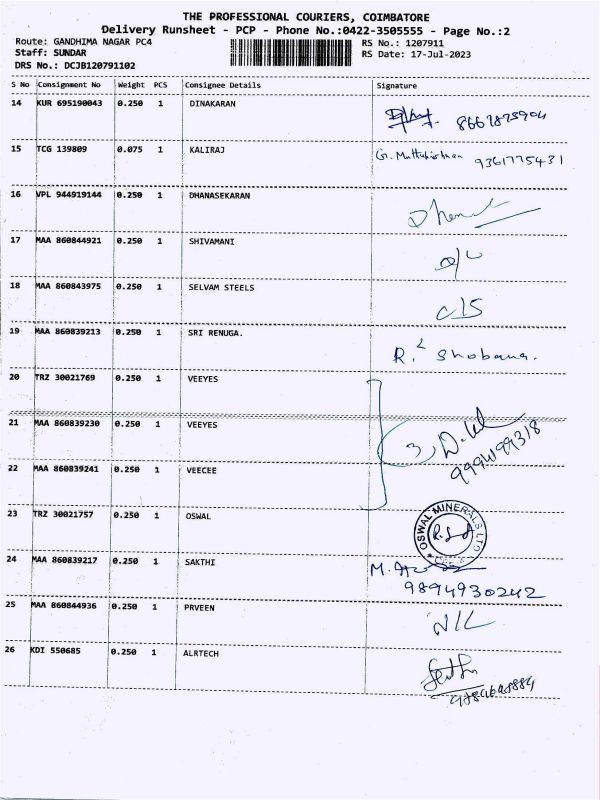 THE PROFESSIONAL COURIERS, COIMBATORE
Delivery Runsheet - PCP - Phone No.:0422-3505555 - Page No.:2
Route: GANDHIMA NAGAR PC4
Staff: SUNDAR
DRS No.: DCJB120791102
RS No.: 1207911
RS Date: 17-Jul-2023
S No Consignment No Weight PCS Consignee Details Signature
14 KUR 695190043 0.250 1 DINAKARAN
15 TCG 139809 0.075 1 KALIRAJ 9361775431
16 VPL 944919144 0.250 1 DHANASEKARAN
17 MAA 860844921 0.250 1 SHIVAMANI
18 MAA 860843975 0.250 1 SELVAM STEELS
19 MAA 860839213 0.250 1 SRI RENUGA. R. Shobana.
20 TRZ 30021769 0.250 1 VEEYES
21 MAA 860839230 0.250 1 VEEYES
22 MAA 860839241 0.250 1 VEECEE
23 TRZ 30021757 0.250 1 OSWAL OSWAL MINERALS LTD
24 MAA 860839217 0.250 1 SAKTHI 9894930242
25 MAA 860844936 0.250 1 PRVEEN
26 KDI 550685 0.250 1 ALRTECH